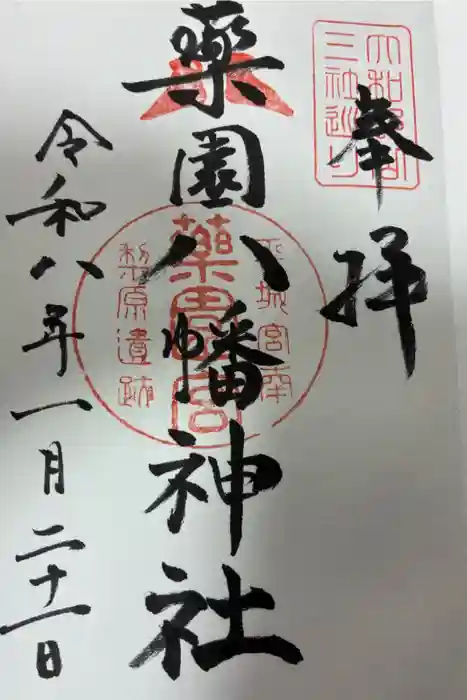 奉拝
大和郡山
三社巡り
薬園八幡神社
平城宮南
薬園宮
梨原遺跡
令和八年一月二十一日